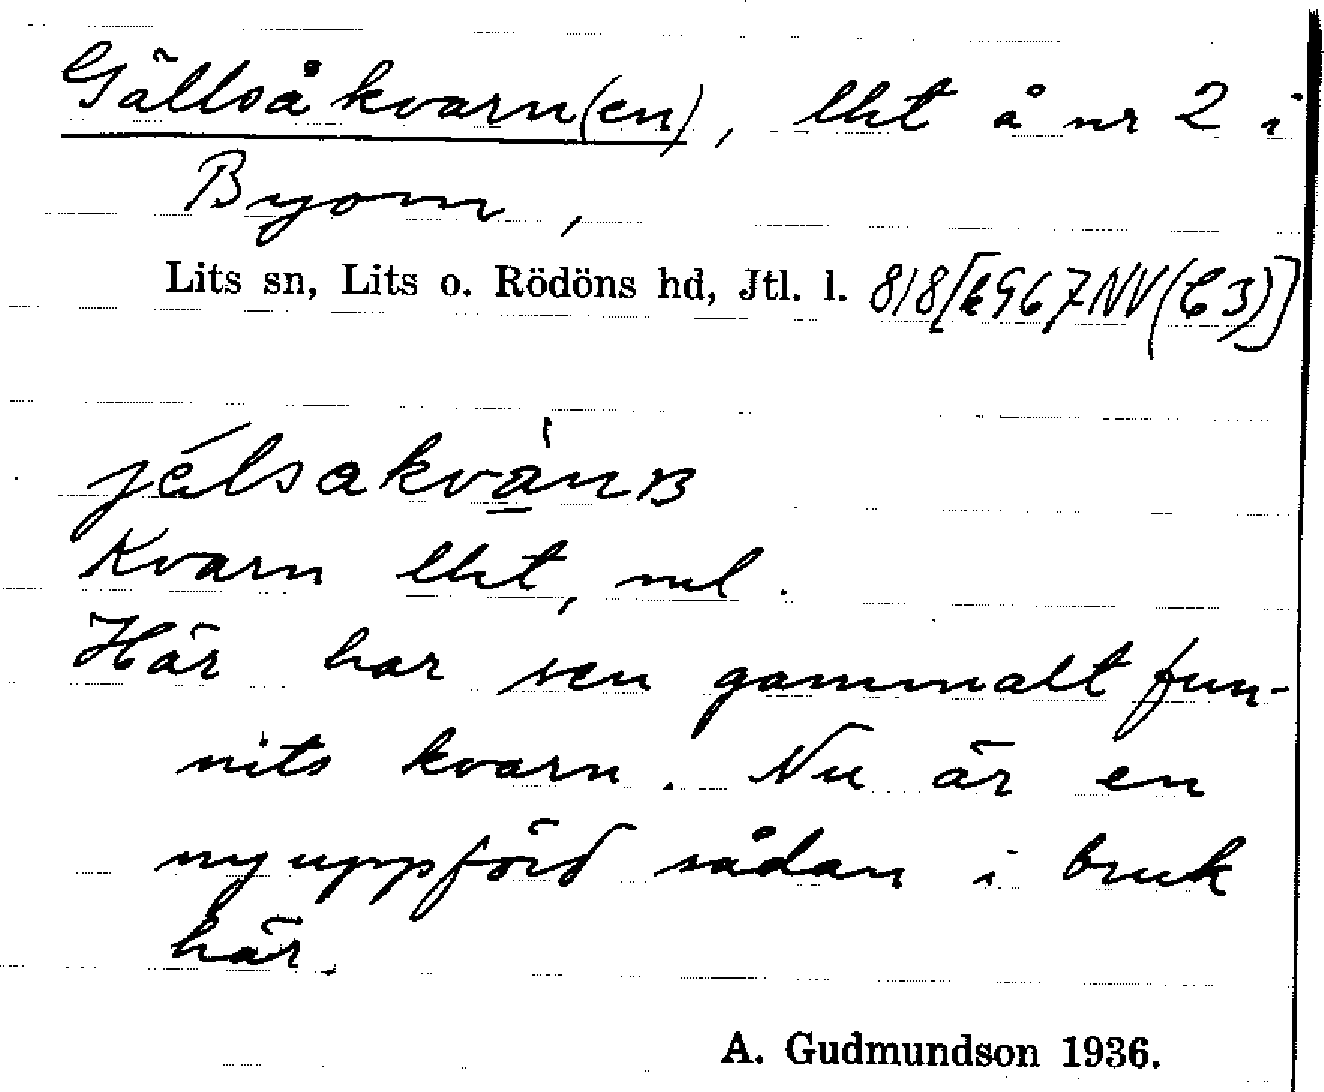 Gällsåkvarn(en), lht å nr 2 i
Byom,
Lits sn, Lits o. Rödöns hd, Jtl. l. 818[k967NV(C3)]
Kvarn lht, nl.
Här har sen gammalt fun-
nits kvarn. Nu är en
nyuppförd sådan i bruk
här.
A. Gudmundson 1936.